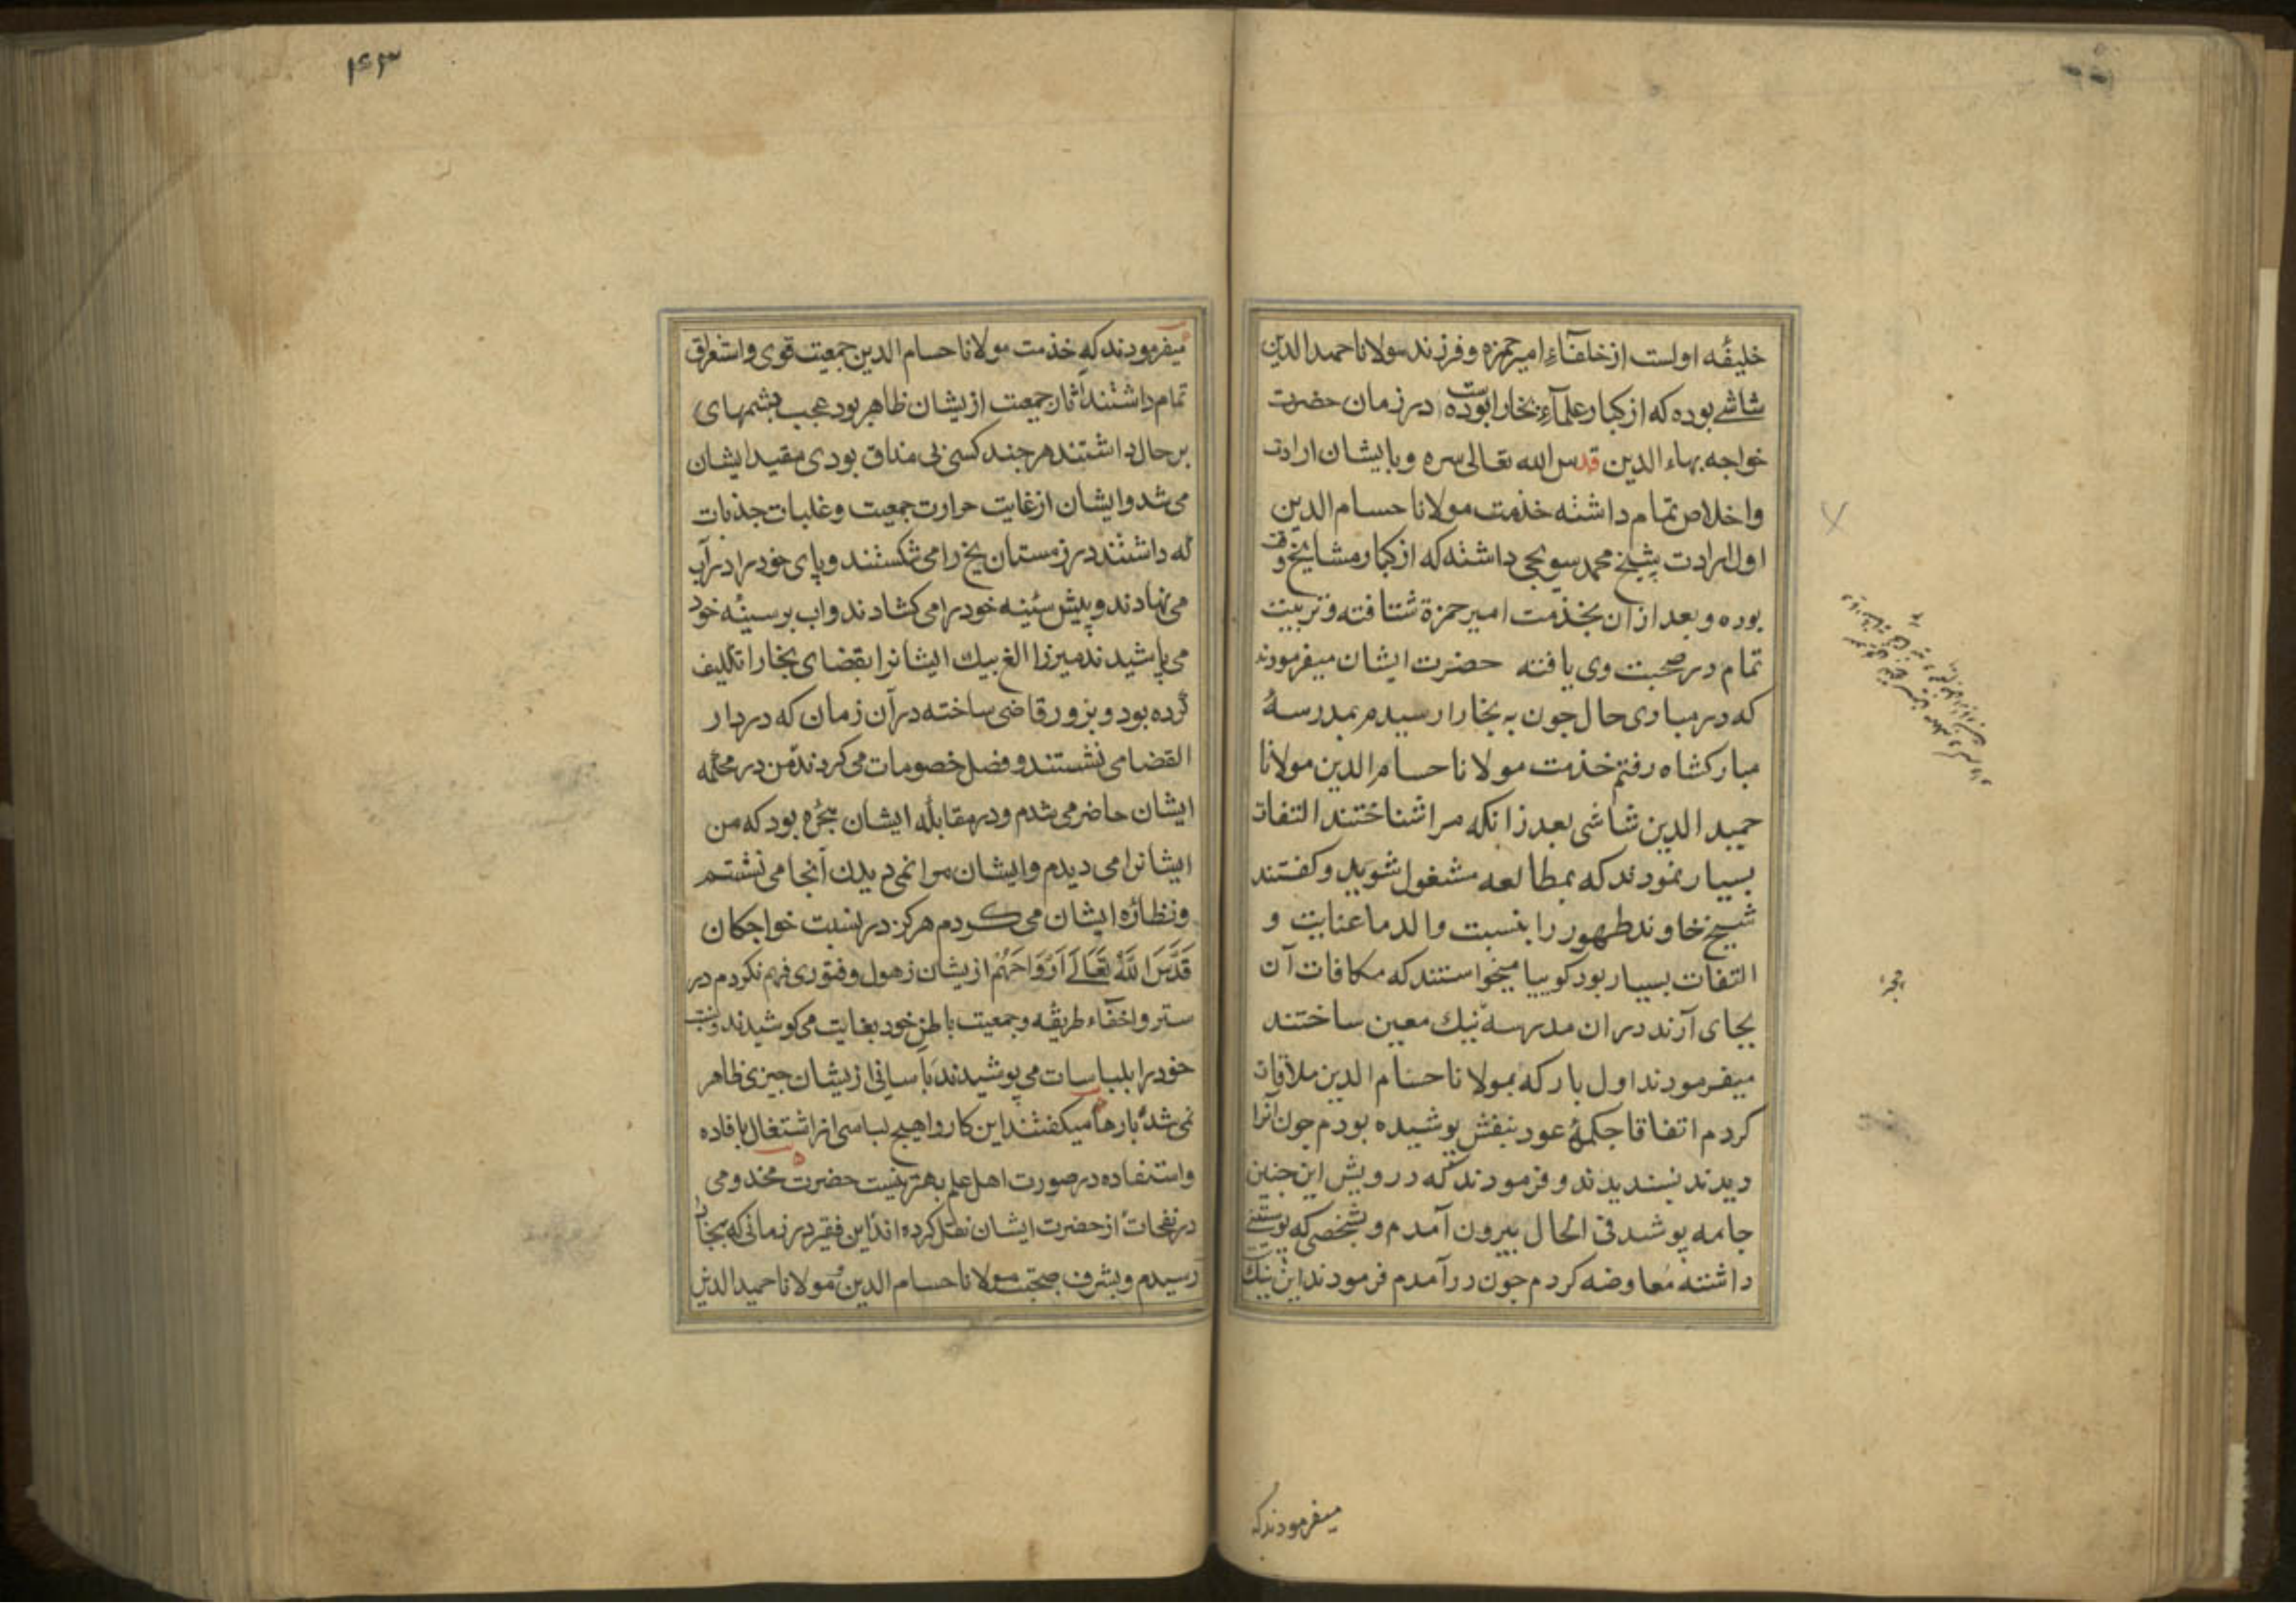 خلیفۀ اولست از خلفآءِ امیر حمزه و فرزند مولانا حمید الدین
شاشی بوده که از کبار علمآءِ بخارا بوده است در زمان حضرت
خواجه بهاء الدین قدس الله تعالی سره و بایشان ارادت
و اخلاص تمام داشته خذمت مولانا حسام الدین
اول ارادت بشیخ محمد سویجی داشته که از کبار مشایخ وقت
بوده و بعد از ان بخذمت امیر حمزة شتافته و تربیت
تمام در صحبت وی یافته حضرت ایشان میفرمودند
که در مبادی حال جون به بخارا رسیدم بمدرسۀ
مبارکشاه رفتم خذمت مولانا حسام الدین مولانا
حمید الدین شاشی بعد زانکه مرا شناختند التفات
بسیار نمودند که بمطالعه مشغول شوید و کفتند
شیخ خاوند طهور را بنسبت والد ما عنایت و
التفات بسیار بود کوییا میخواستند که مکافات آن
بجای آرند در ان مدرسه نیك معین ساختند
میفرمودند اول بار که بمولانا حسام الدین ملاقات
کردم اتفاقا جکمۀ عود بنفش پوشیده بودم جون آنرا
دیدند نبسندیدند و فرمودند که درویش این جنین
جامه پوشد فی الحال بیرون آمدم و بشخصی که پوستینی
داشته معاوضه کردم جون در آمدم فرمودند این نیك است
میفرمودند که
۱۴۳
میفرمودند که خذمت مولانا حسام الدین جمعیت قوی و استغراق
تمام داشتند آثار جمعیت از یشان ظاهر بود عجب بشمهای
بر حال داشتند هر جند کسی بی مذاق بودی مقید ایشان
می شد و ایشان از غایت حرارت جمعیت و غلبات جذبات
که داشتند در زمستان یخ را می شکستند و پای خود را در آب
می نهادند و پیش سینه خود را می کشادند و اب بر سینۀ خود
می پاشیدند میرزا الغ بیك ایشانرا بقضای بخارا تکلیف
کرده بود و بزور قاضی ساخته در آن زمان که در دار
القضا می نشستند و فصل خصومات می کردند من در محکمه
ایشان حاضر می شدم و در مقابله ایشان حجره بود که من
ایشانرا می دیدم و ایشان مرا نمی دیدن آنجا می نشستم
و نظاره ایشان می کردم هرکز در نسبت خواجکان
قَدَّسَ اللهُ تَعَالَی اَرْوَاحَهُم از یشان ذهول و فتوری فهم نکردم در
ستر و اخفآء طریقه و جمعیت باطن خود بغایت می کوشیدند و نسبت
خود را بلباسات می پوشیدند بآسانی از یشان جیزی ظاهر
نمی شد بارها میکفتند این کار را هیچ لباسی از اشتغال بافاده
و استفاده در صورت اهل علم بهتر نیست حضرت مخدومی
در نفحات از حضرت ایشان نقل کرده اند این فقیر در زمانی که ببخارا
رسیدم و بشرف صحبت مولانا حسام الدین مولانا حمید الدین